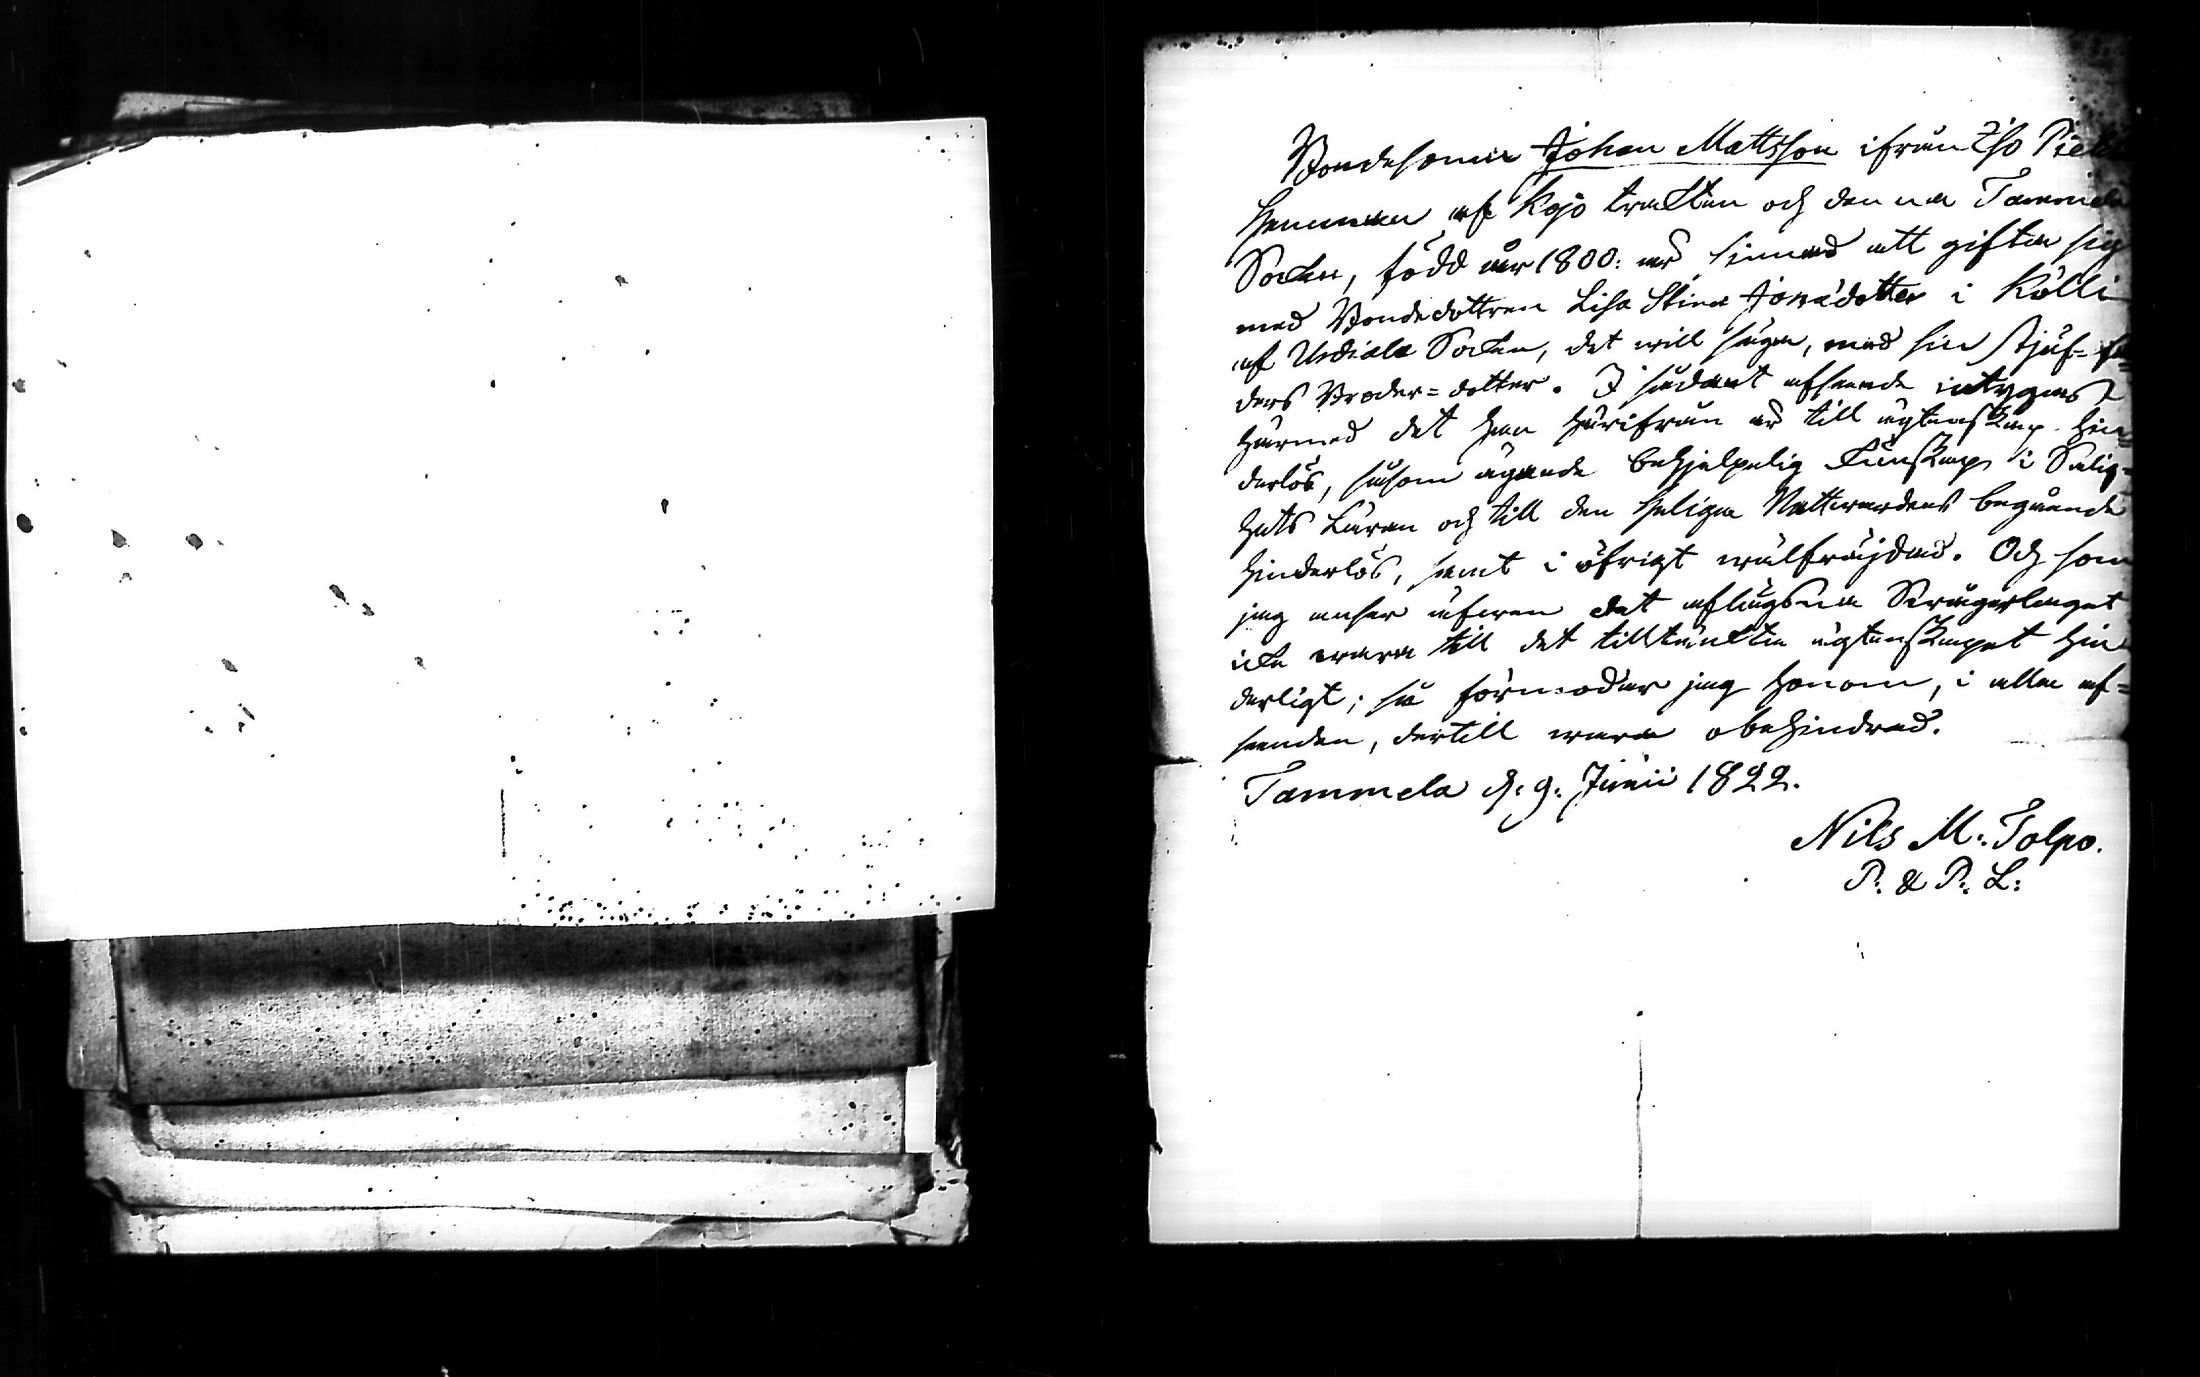 Bondesonen Johan Mattsson ifrån Iso
Hemman af Kojo trakten och denna Tammela
Socken, född år 1800: är sinnad att gifta sig
med Bondedottren Lisa Stina Jonædotter i Kölli
af Urdiala Socken, det will säga, med sin stjuf-fa-
ders Broder=dotter. I sådant afseende intygas
härmed det han härifrån är till ägtenskap hin=
derlös, såsom ägande behjelpelig kunskap i Salig=
hets Läran och till den Heliga Nattwardens begående
hinderlös, samt i öfrigt wälfräjdad. Och som
jag anser äfwen det aflägsna Swågerlaget
icke wara till det tilltänkta ägtenskapet hin
derligt; så förmodar jag honom, i alla af=
seenden, dertill wara obehindrad.
Tammela d. 9. Junii 1822.
Nils M: Tolpo.
P. & P. L: